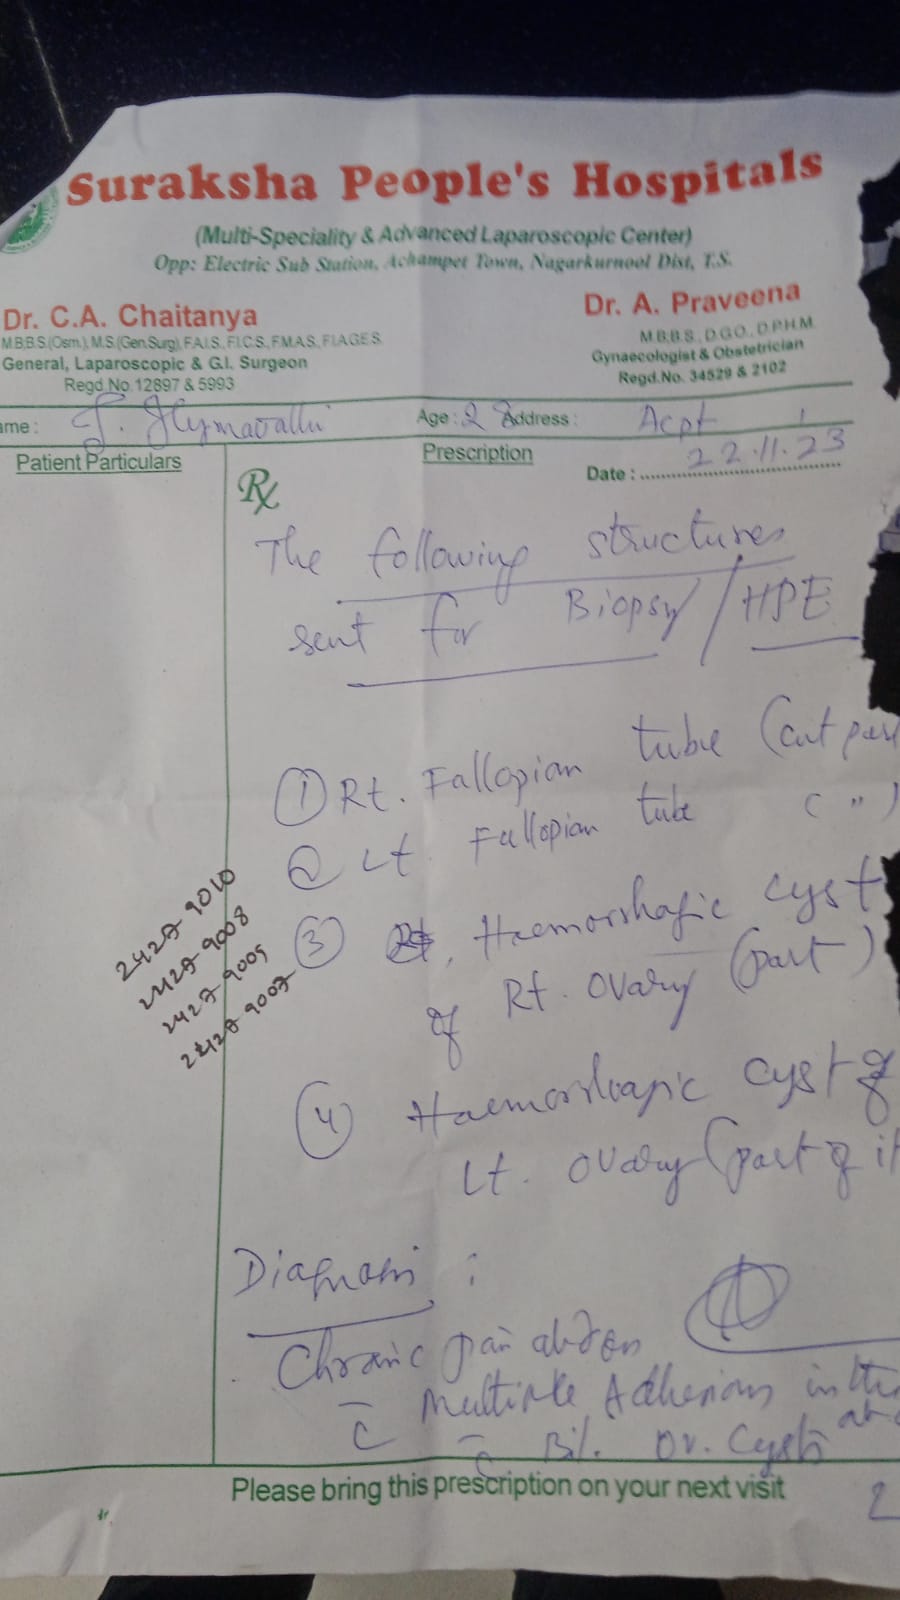 Suraksha People's Hospitals
(Multi-Speciality & Advanced Laparoscopic Center)
Opp: Electric Sub Station, Achampet Town, Nagarkurnool Dist, T.S.
Dr. C.A. Chaitanya
M.B.B.S.(Osm.), M.S.(Gen.Surg), F.A.I.S., F.I.C.S., F.M.A.S., F.I.A.G.E.S.
General, Laparoscopic & G.I. Surgeon
Regd.No.12897 & 5993
Dr. A. Praveena
M.B.B.S., D.G.O., D.P.H.M.
Gynaecologist & Obstetrician
Regd.No. 34529 & 2102
ame : Age : 28 Address : Acpt
Patient Particulars
Prescription
Date : 22.11.23
Rx
The following structures
sent for Biopsy / HPE
① Rt. Fallopian tube (cut
② Lt. Fallopian tube ( " )
③ Haemorrhagic cyst
of Rt. ovary (part)
④ Haemorrhagic cyst of
Lt. ovary (part of it
2427 9010
2427 9008
2427 9005
2427 9007
Diagnosis :
Chronic pain abdomen
c̄ Multiple Adhesions in the
c̄ Bil. Ov. Cysts
Please bring this prescription on your next visit
2